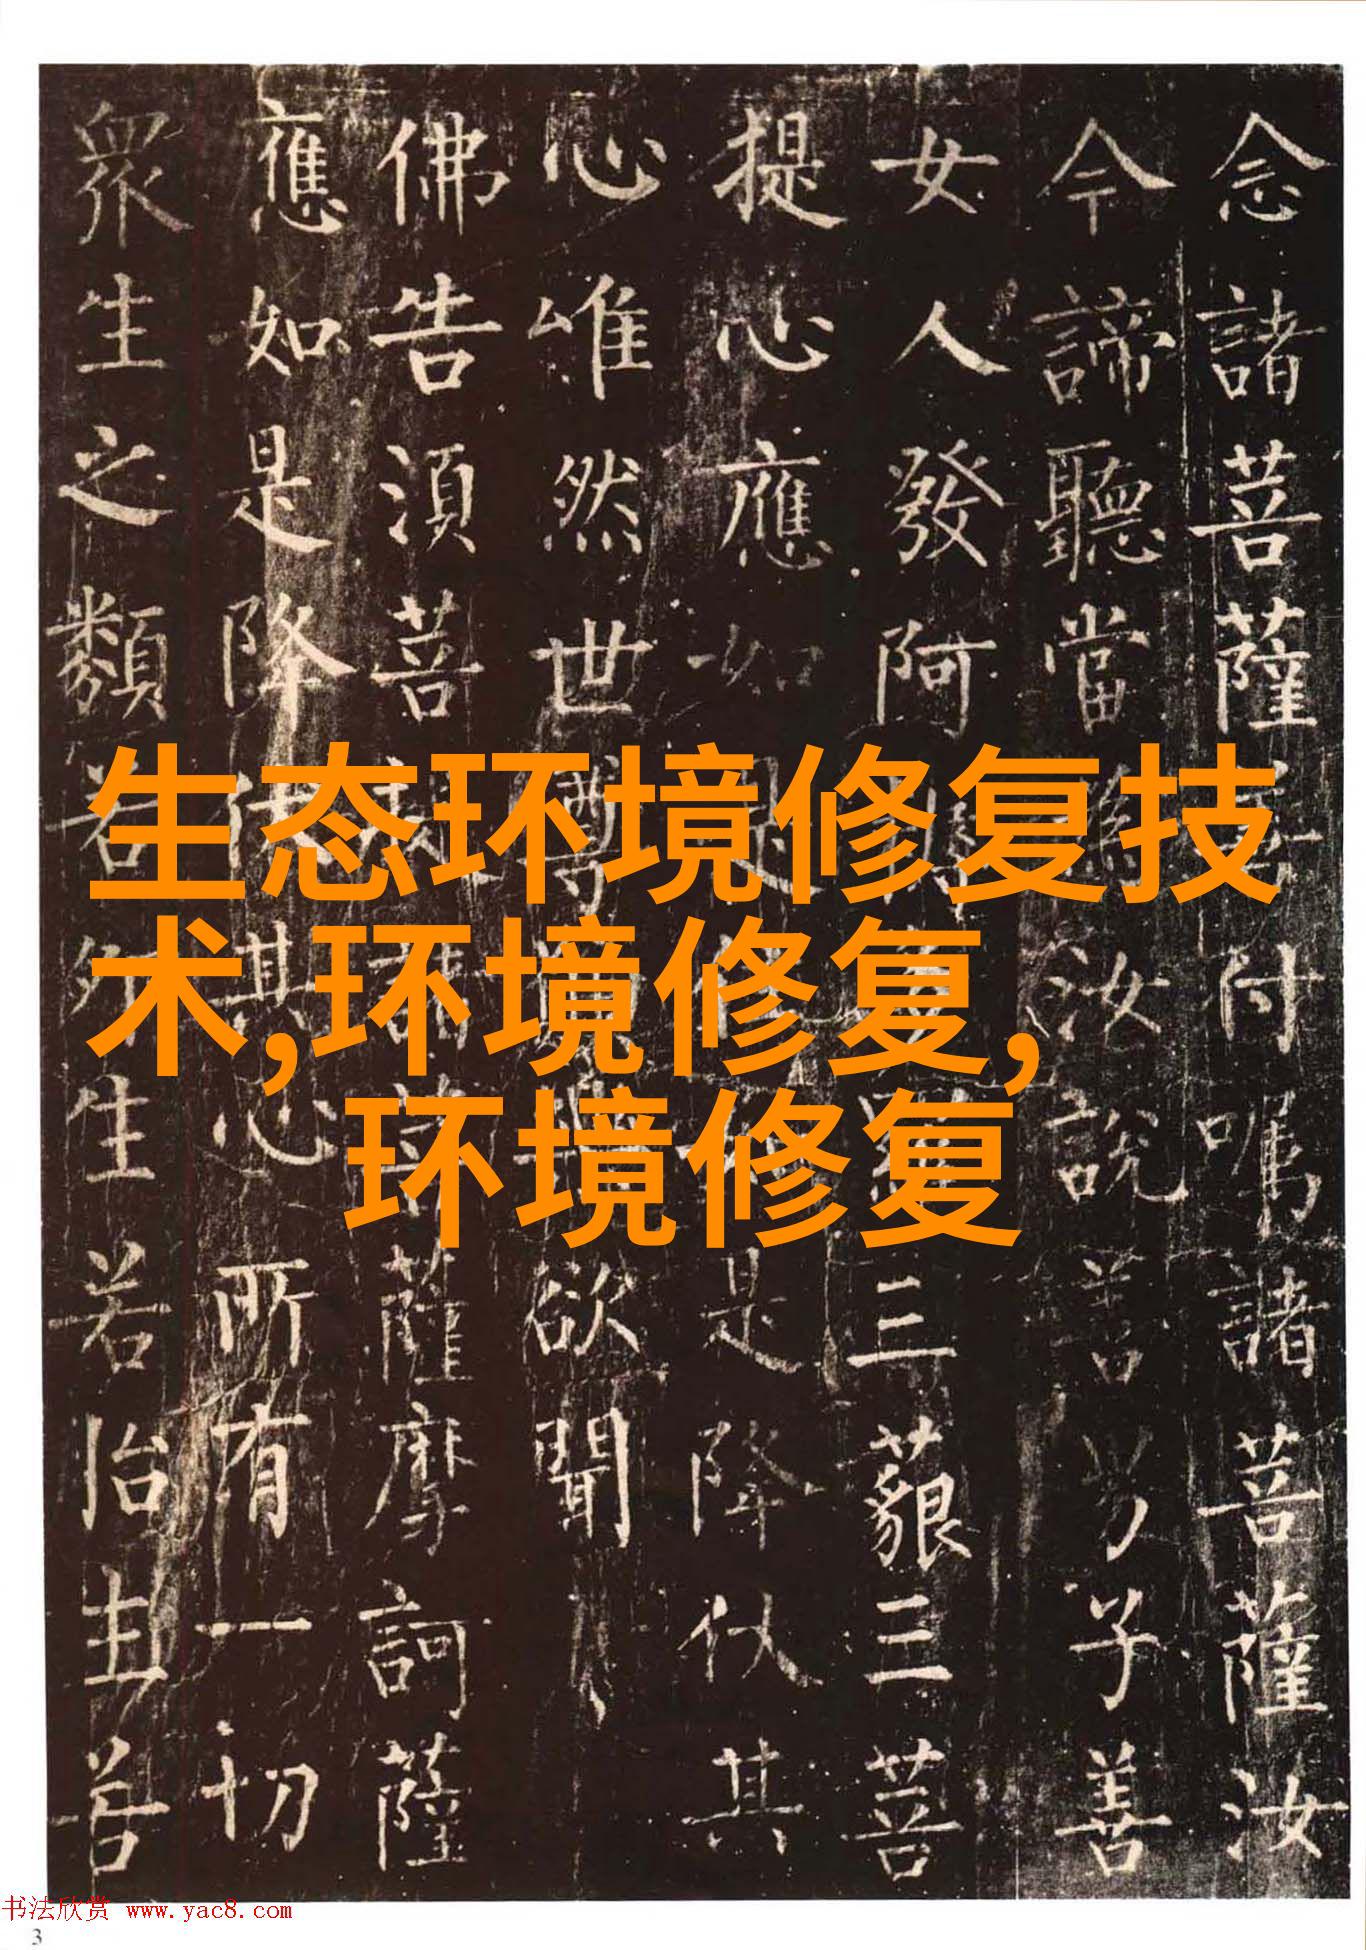 念諸菩薩善付嘱諸菩薩汝
今諦聽當為汝說善男子善
女人發阿耨三藐三菩
提心應如是住是降伏其
心唯然世尊願樂欲聞
佛告須菩提諸菩薩摩訶薩
應如是降伏其心所有一切
眾生之類若卵生若胎生若
生态环境修复技
术,环境修复,
环境修复
书法欣赏 www.yac8.com
3